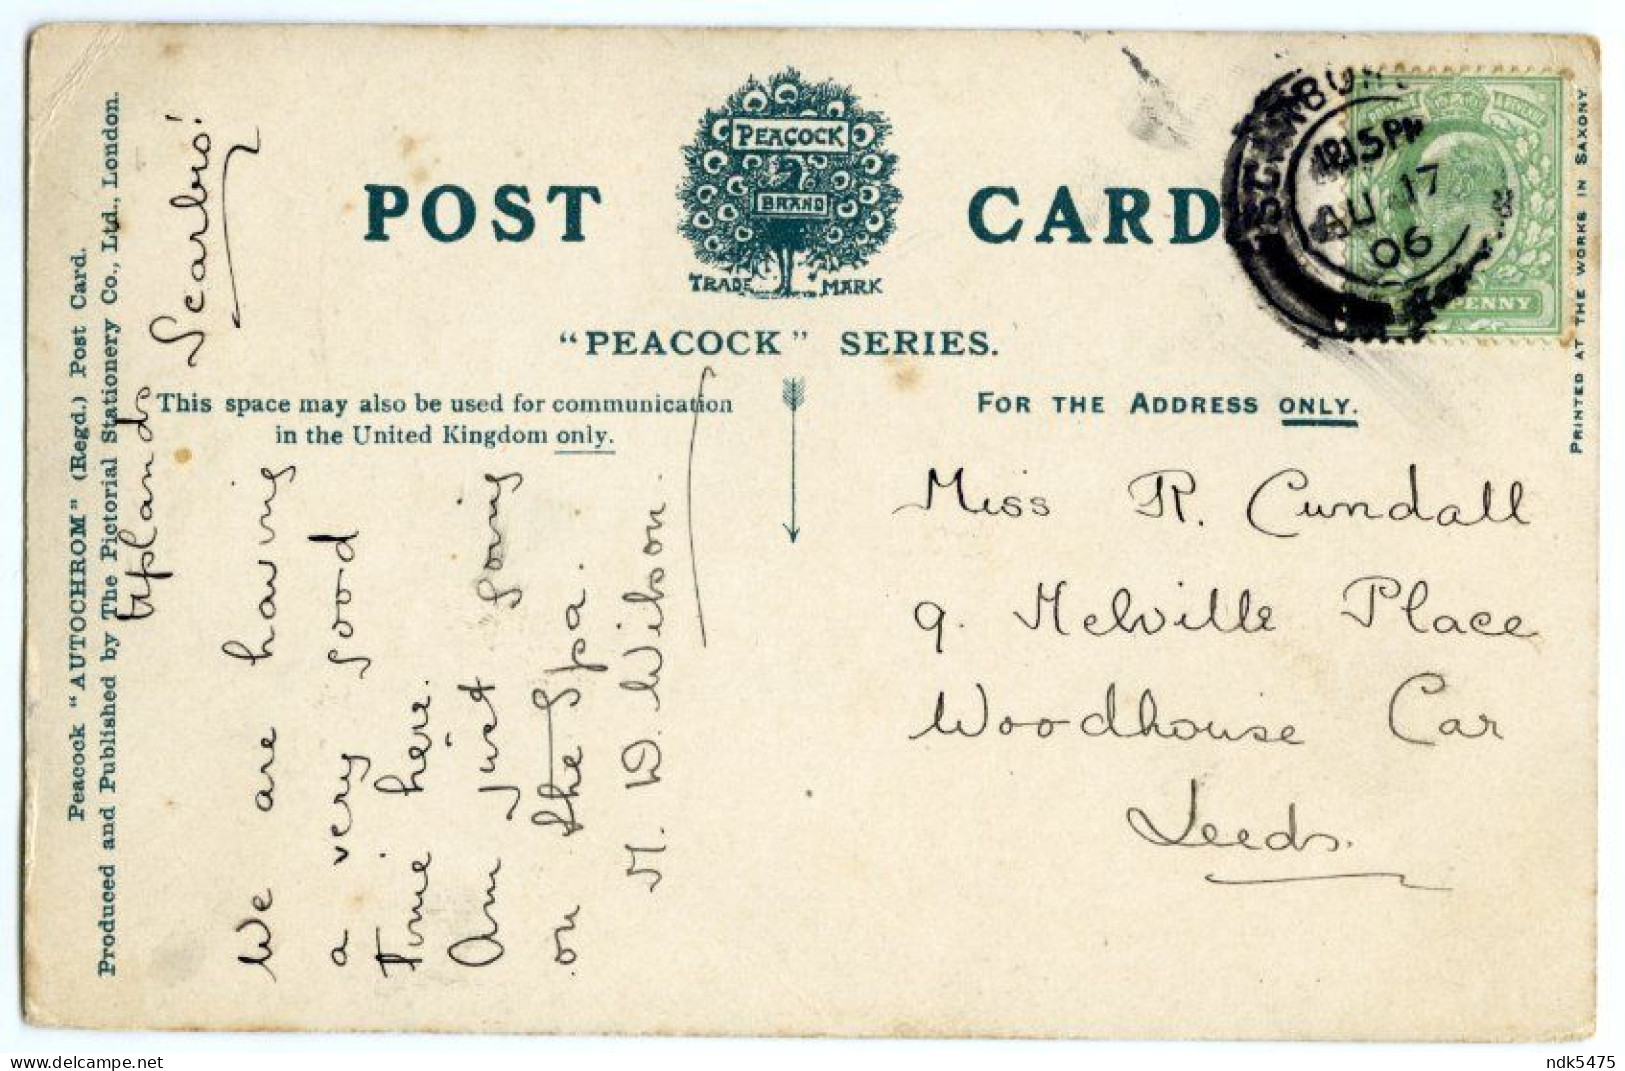 POST CARD
PEACOCK
BRAND
TRADE MARK
"PEACOCK" SERIES.
This space may also be used for communication
in the United Kingdom only.
FOR THE ADDRESS ONLY.
Peacock "AUTOCHROM" (Regd.) Post Card.
Produced and Published by The Pictorial Stationery Co., Ltd., London.
Uplands
Scarbro'
We are having
a very good
time here.
Am just going
on the Spa.
M. W. Wilson.
Miss R. Cundall
9. Melville Place
Woodhouse Car
Leeds.
12 15 PM
AU 17
06
PENNY
PRINTED AT THE WORKS IN SAXONY.
www.delcampe.net
ndk5475